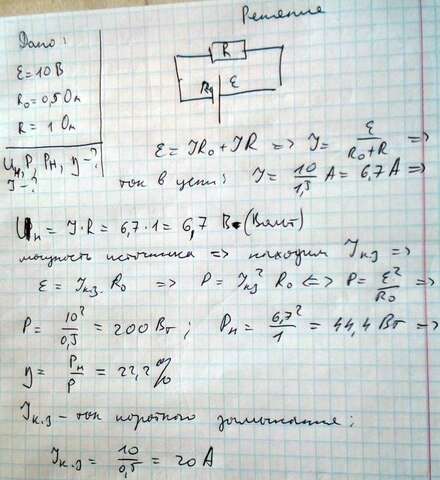 Решение
Дано:
ε = 10 В
R₀ = 0,5 Ом
R = 1 Ом
Uн, P, Pн, η - ?
I - ?
R
R₀ ε
ε = IR₀ + IR => I = ε/(R₀ + R) =>
ток в цепи: I = 10/1,5 A = 6,7 A =>
Uн = I · R = 6,7 · 1 = 6,7 В (Вольт)
мощность источника => находим Iкз =>
ε = Iкз · R₀ => P = Iкз² R₀ <=> P = ε²/R₀
P = 10²/0,5 = 200 Вт ; Pн = 6,7²/1 = 44,4 Вт =>
η = Pн/P = 22,2%
Iк.з – ток короткого замыкания;
Iк.з = 10/0,5 = 20 A